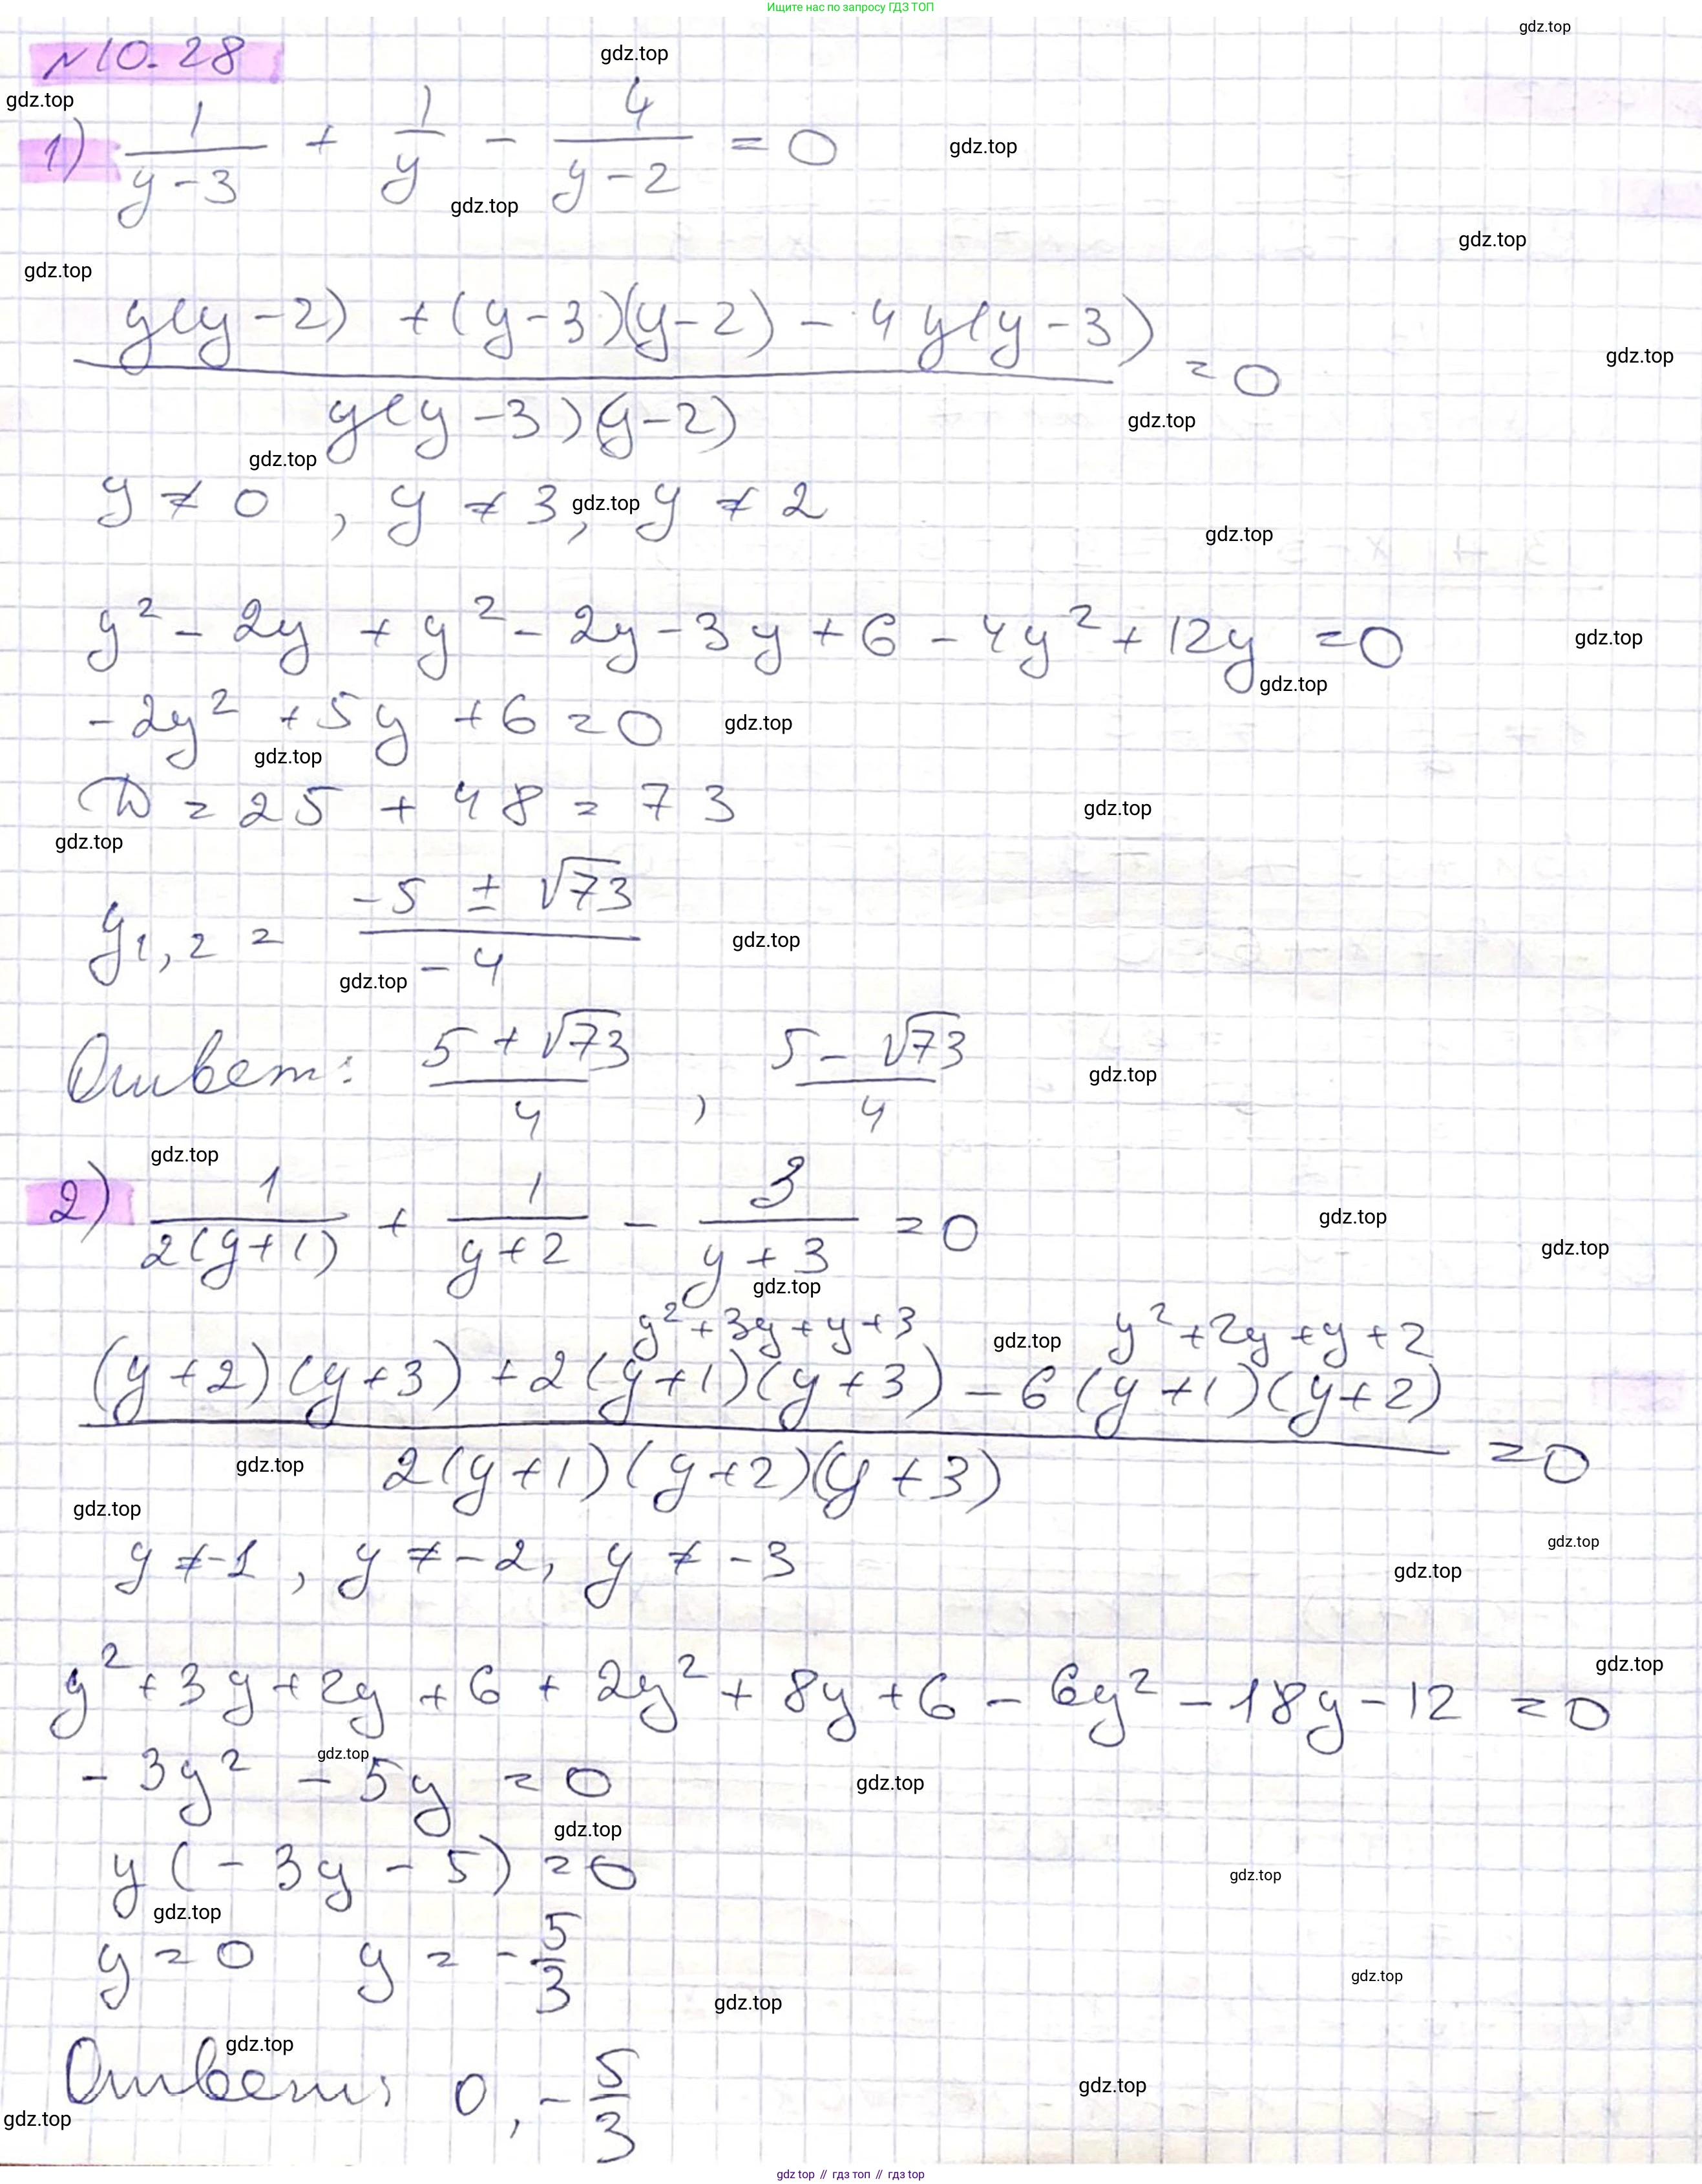 Ищите нас по запросу ГДЗ ТОП
gdz.top
№10.28
gdz.top
gdz.top
1) 1/(y-3) + 1/y - 4/(y-2) = 0
gdz.top
gdz.top
gdz.top
gdz.top
(y(y-2) + (y-3)(y-2) - 4y(y-3))/(y(y-3)(y-2)) = 0
gdz.top
gdz.top
gdz.top
y ≠ 0, y ≠ 3, y ≠ 2
gdz.top
gdz.top
y² - 2y + y² - 2y - 3y + 6 - 4y² + 12y = 0
gdz.top
gdz.top
-2y² + 5y + 6 = 0
gdz.top
gdz.top
D = 25 + 48 = 73
gdz.top
gdz.top
y₁,₂ = (-5 ± √73)/(-4)
gdz.top
gdz.top
Ответ: (5 + √73)/4, (5 - √73)/4
gdz.top
gdz.top
2) 1/(2(y+1)) + 1/(y+2) - 3/(y+3) = 0
gdz.top
gdz.top
gdz.top
y²+3y+y+3
gdz.top
y²+2y+y+2
((y+2)(y+3) + 2(y+1)(y+3) - 6(y+1)(y+2))/(2(y+1)(y+2)(y+3)) = 0
gdz.top
gdz.top
y ≠ -1, y ≠ -2, y ≠ -3
gdz.top
gdz.top
y² + 3y + 2y + 6 + 2y² + 8y + 6 - 6y² - 18y - 12 = 0
gdz.top
gdz.top
-3y² - 5y = 0
gdz.top
gdz.top
y(-3y - 5) = 0
gdz.top
gdz.top
y = 0 y = -5/3
gdz.top
gdz.top
gdz.top
Ответ: 0, -5/3
gdz.top
gdz.top
gdz.top // гдз топ // gdz top